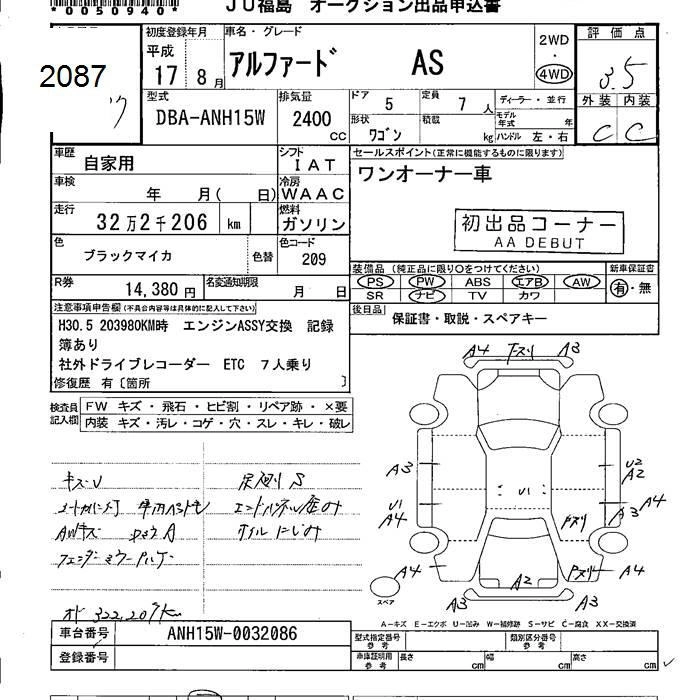 *0050940*
JU福島 オークション出品申込書
2087
初度登録年月
平成
17 8月
車名・グレード
アルファード AS
2WD
・
4WD
評価点
3.5
外装 内装
C C
型式
DBA-ANH15W
排気量
2400
cc
ドア 5
定員 7 人
ディーラー・並行
形状
ワゴン
積載
kg
モデル年式 年
ハンドル 左・右
車歴
自家用
シフト
IAT
セールスポイント(正常に機能するものに限ります)
ワンオーナー車
車検
年 月( 日)
冷房
WAAC
走行
32万2千206 km
燃料
ガソリン
初出品コーナー
AA DEBUT
色
ブラックマイカ
色替
色コード
209
装備品 (純正品に限り〇をつけてください)
新車保証書
PS PW ABS エアB AW
SR ナビ TV カワ
有・無
R券
14,380 円
名変通知期限
月 日
後日品
保証書・取説・スペアキー
注意事項申告欄(不具合内容等は具体的に記入して下さい)
H30.5 203980KM時 エンジンASSY交換 記録
簿あり
社外ドライブレコーダー ETC 7人乗り
修復歴 有〔箇所 〕
検査員
記入欄
FW キズ・飛石・ヒビ割・リペア跡・×要
内装 キズ・汚レ・コゲ・穴・スレ・キレ・破レ
A4 下スリ A3
キズU
AWキズ
オイルにじみ
322,209km
A3
U1
A4
U1
U2
A2
A4
A3
A4
A2
A4
A3
A3
スペア
A-キズ E-エクボ U-凹み W-補修跡 S-サビ C-腐食 XX-交換済
車台番号
ANH15W-0032086
型式指定番号
参考
類別区分番号
参考
登録番号
車庫証明用
参考
長さ cm
幅 cm
高さ cm